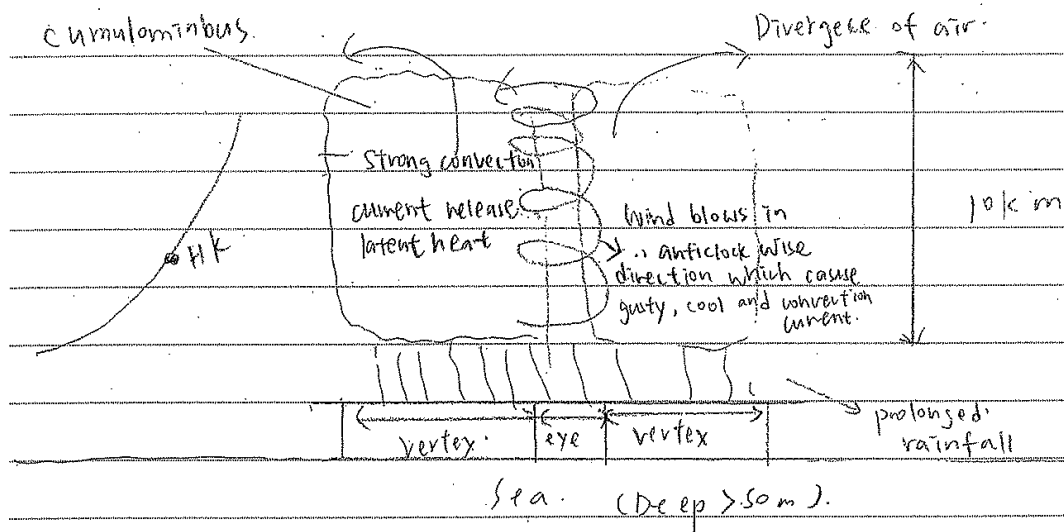 cumulominbus.
Divergese of air.
Strong convection
current release
latent heat
HK
Wind blows in
anticlockwise
direction which casuse
gusty, cool and convection
current.
10km
prolonged
rainfall
vertex.
eye
vertex
Sea. (Deep >50m).